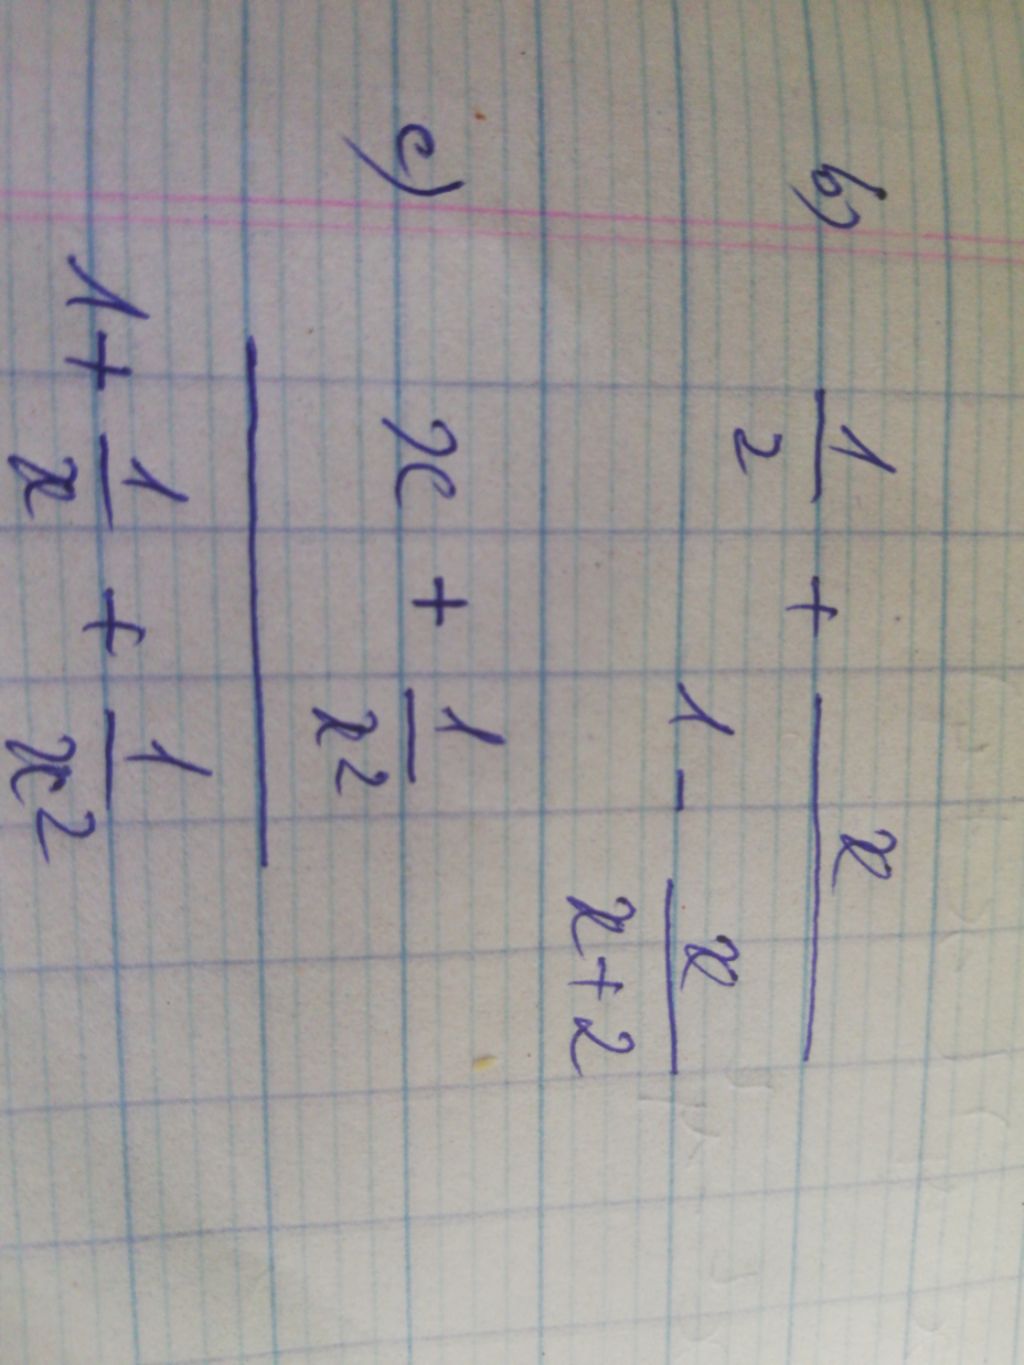 b) 1/2 + x/(1 - x/(x+2))
c) (x + 1/x²)/(1 + 1/x + 1/x²)